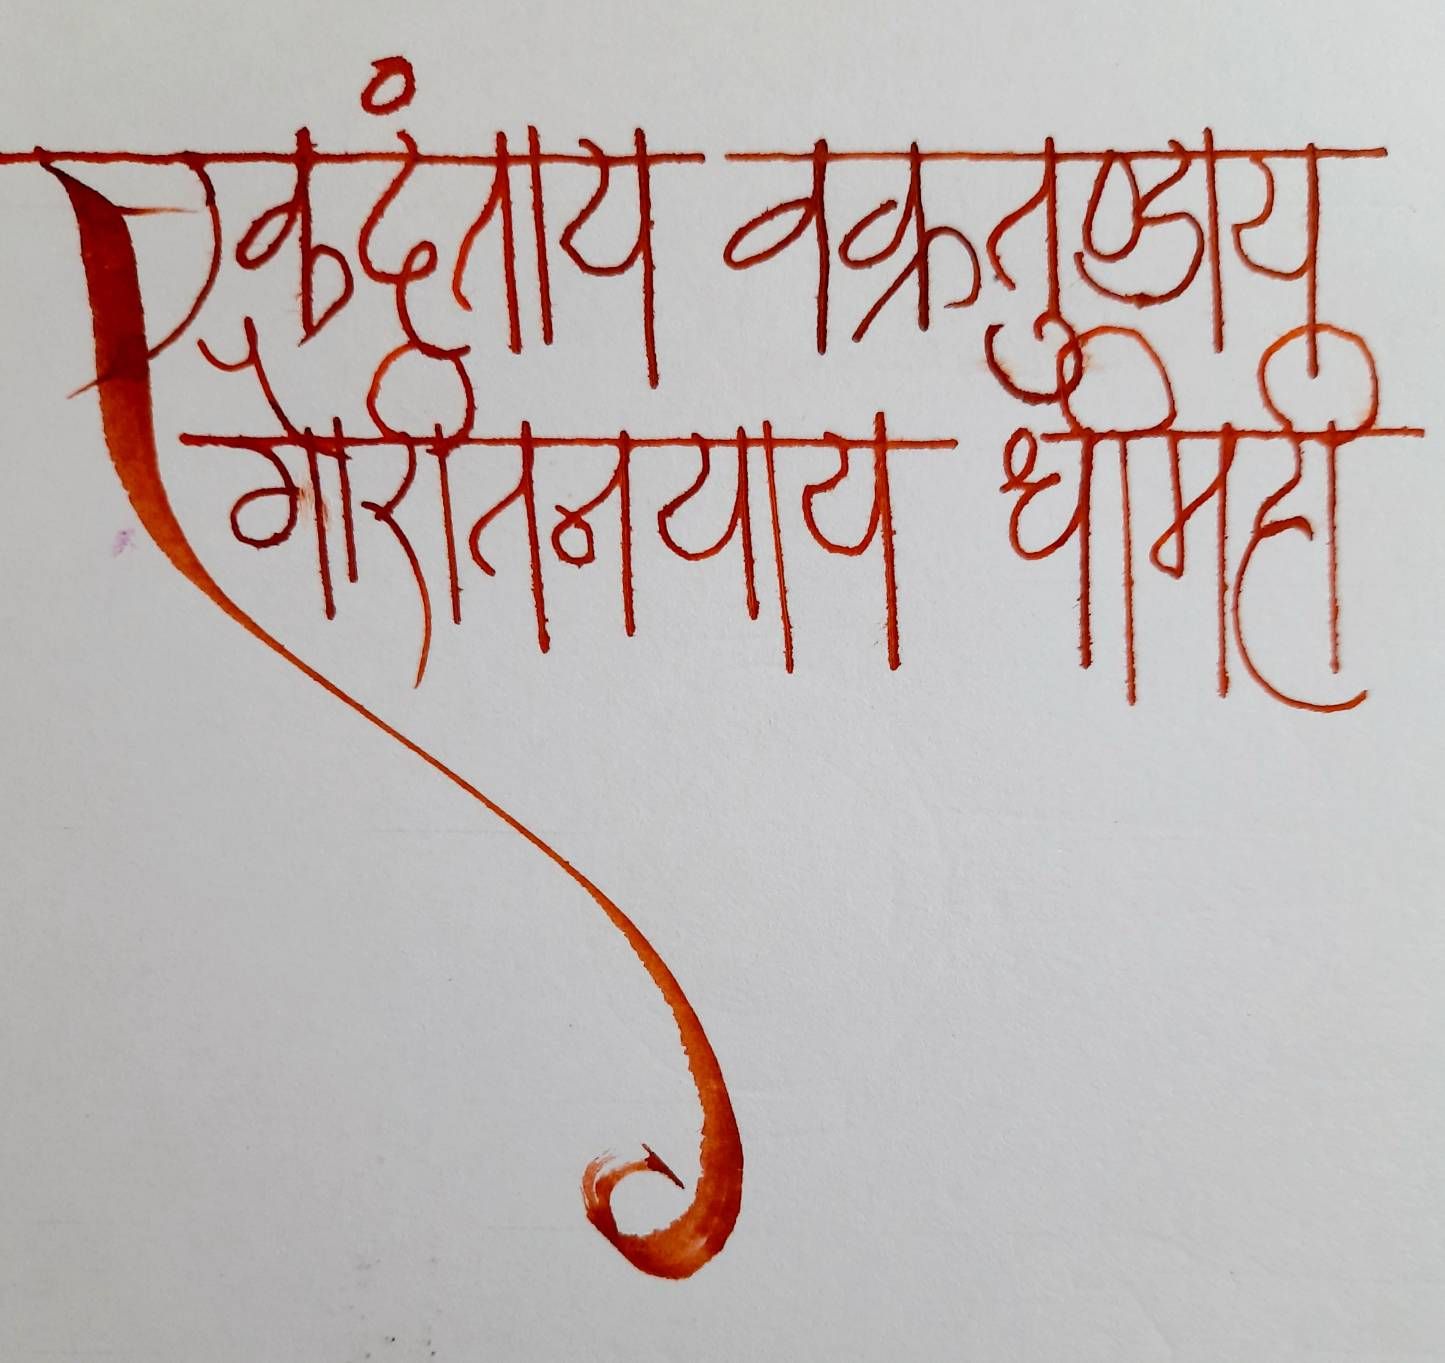 एकदंताय वक्रतुण्डाय
गौरीतनयाय धीमही